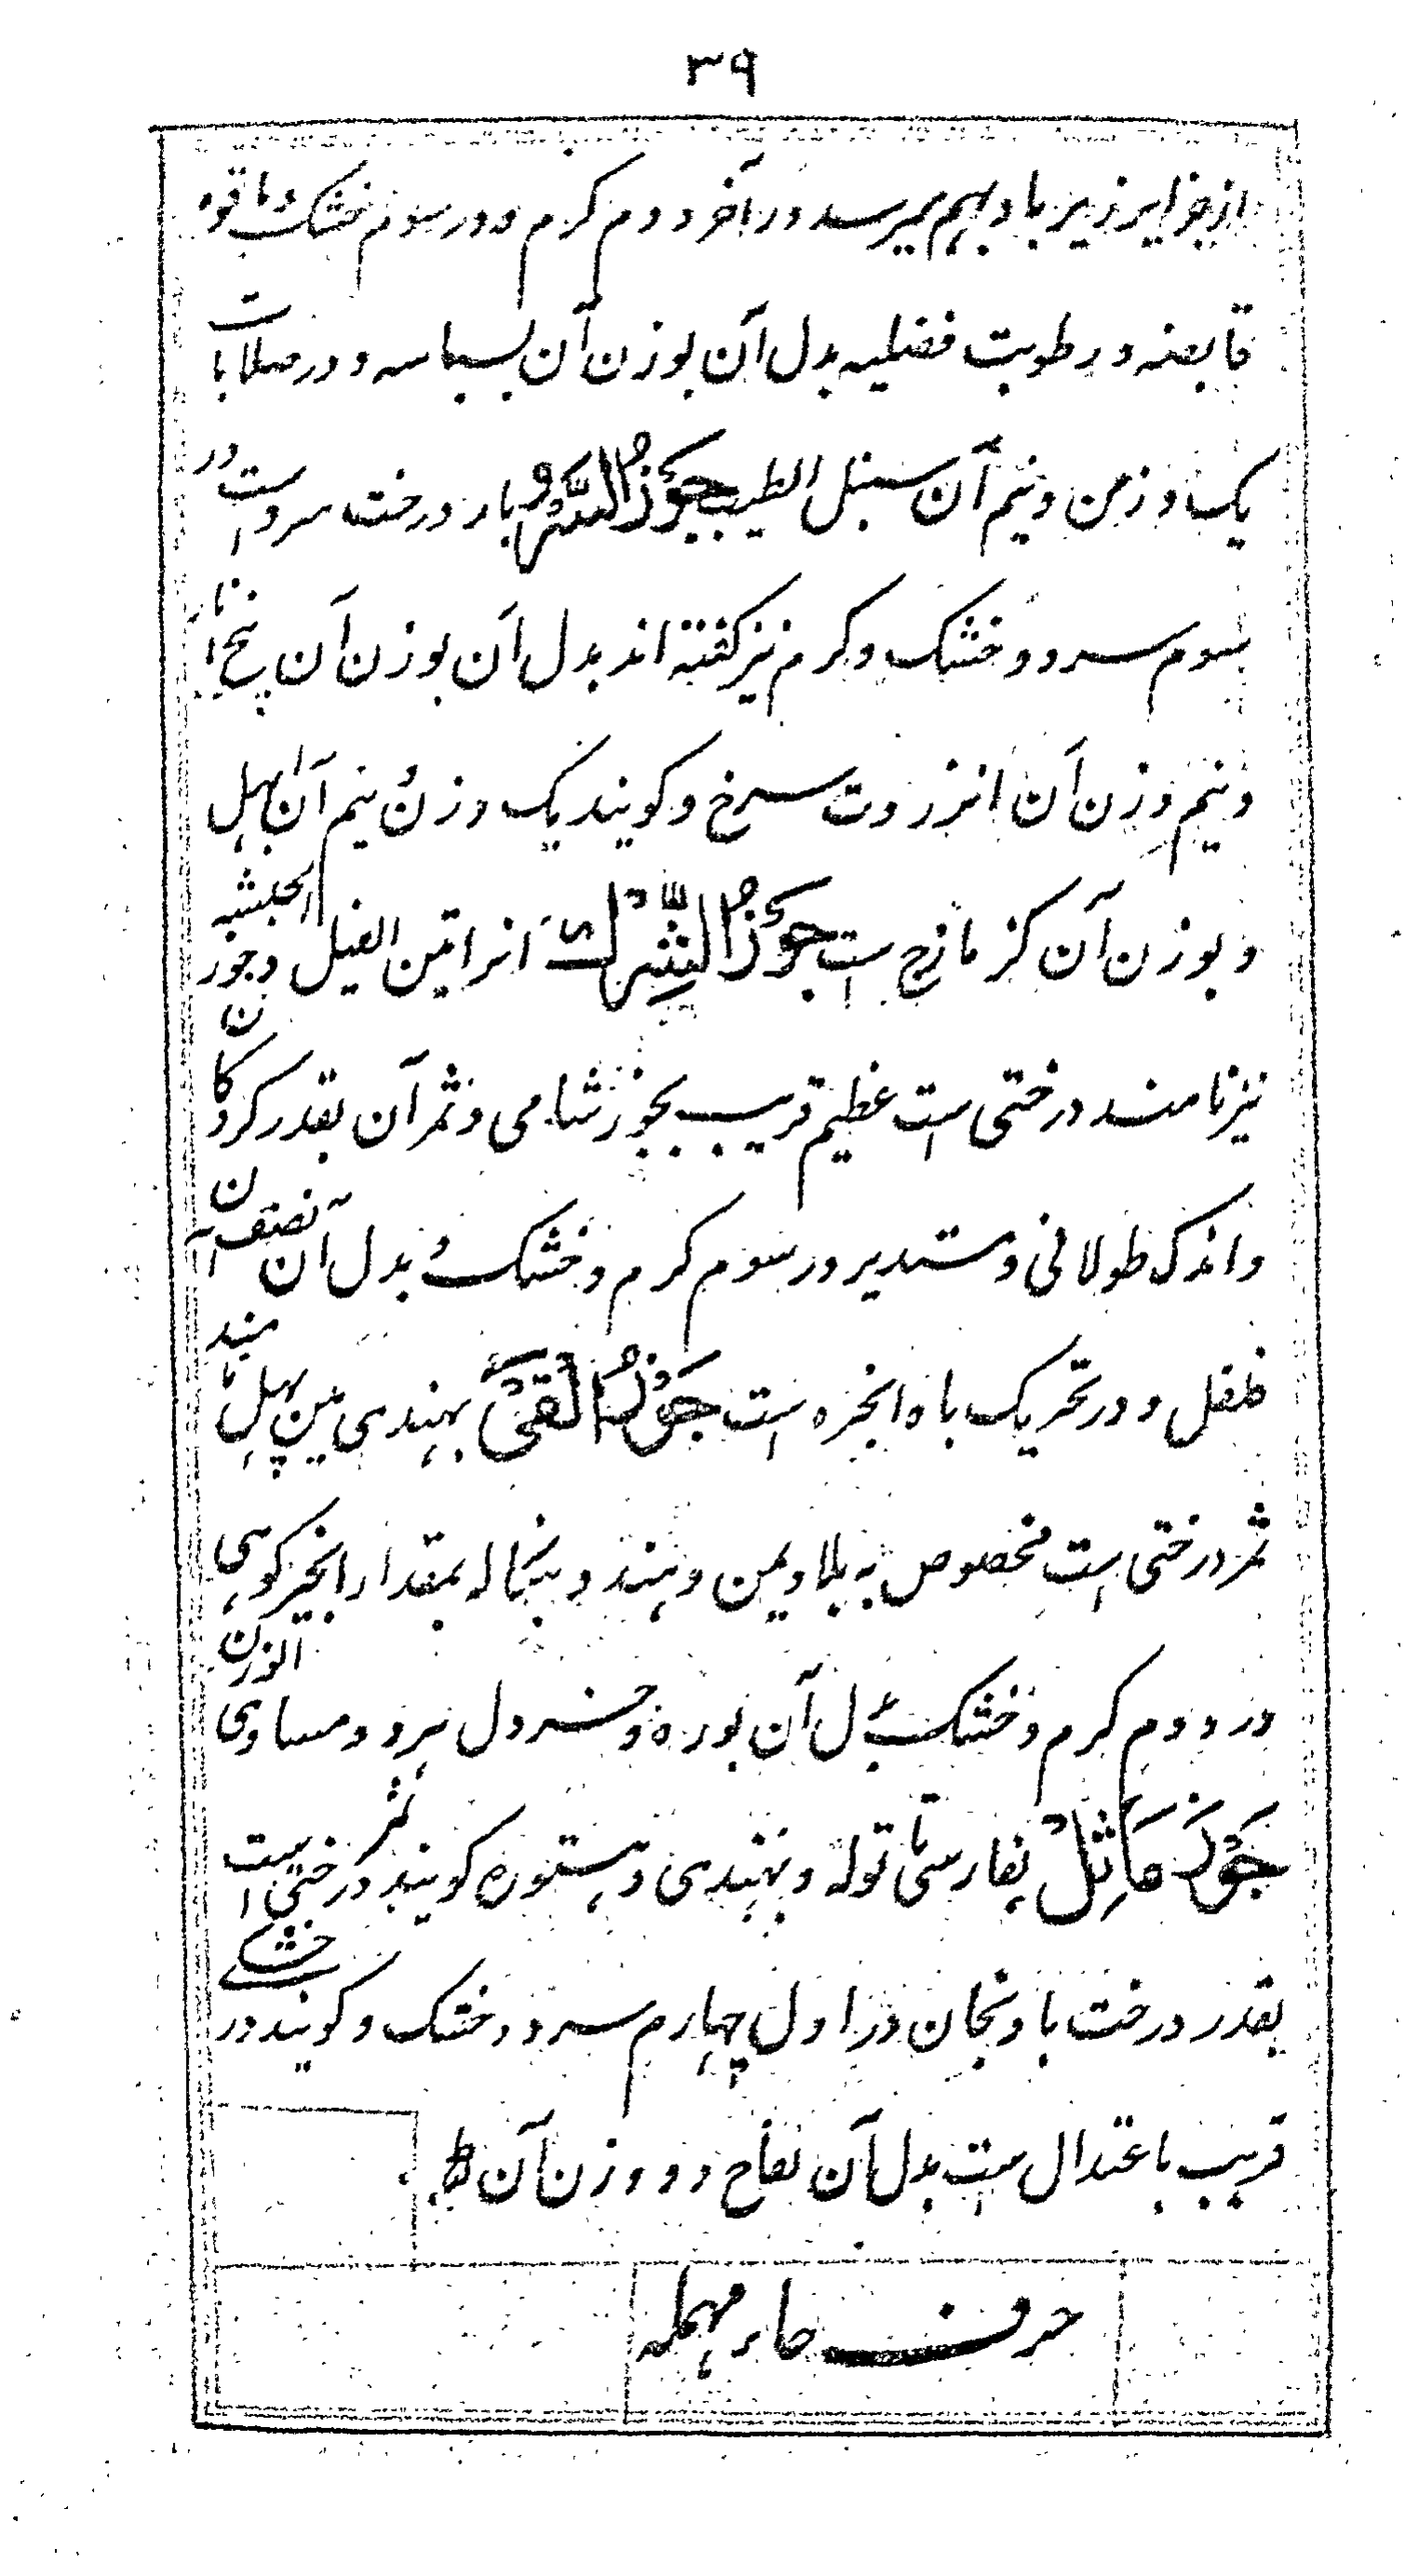 ۳۹
از جزایر زیر باد بہم میرسد در آخر دوم کرم و در سوم خشک و با قوه
قابضه و رطوبت فضلیه بدل آن بوزن آن بسباسه و در صلابات
یک وزن و نیم آن سنبل الطیب جَوزُ السَّرو بار درخت سرو است در
سوم سرد و خشک و کرم نیز کفته اند بدل آن بوزن آن پخ انار
و نیم وزن آن انزروت سرخ و کویند یک وزن نیم آن ابهل
و بوزن آن کزمازج ست جَوزُ الشِّرک انراتین الفیل و جوز الحبشه
نیز نامند درختی ست عظیم قریب بجوز شامی و ثمر آن بقدر کردکان
و اندک طولانی و مستدیر در سوم کرم و خشک بدل آن نصف آن
فلفل و در تحریک باه انجره است جَوزُ القَیّ بهندی مین پهل نامند
ثمر درختی است مخصوص به بلاد یمن و هند و بنکاله بمقدار انجیر کوهی
در دوم کرم و خشک بدل آن بوره و خردل هر دو مساوی الوزن
جَوز مَاثِل بفارسی تاتوله و بهندی دهتوره کویند ثمر درختی است
بقدر درخت بادنجان در اول چهارم سرد و خشک و کویند در خشکی
قریب باعتدال ست بدل آن تفاح دو وزن آن
حرف حاء مہملہ